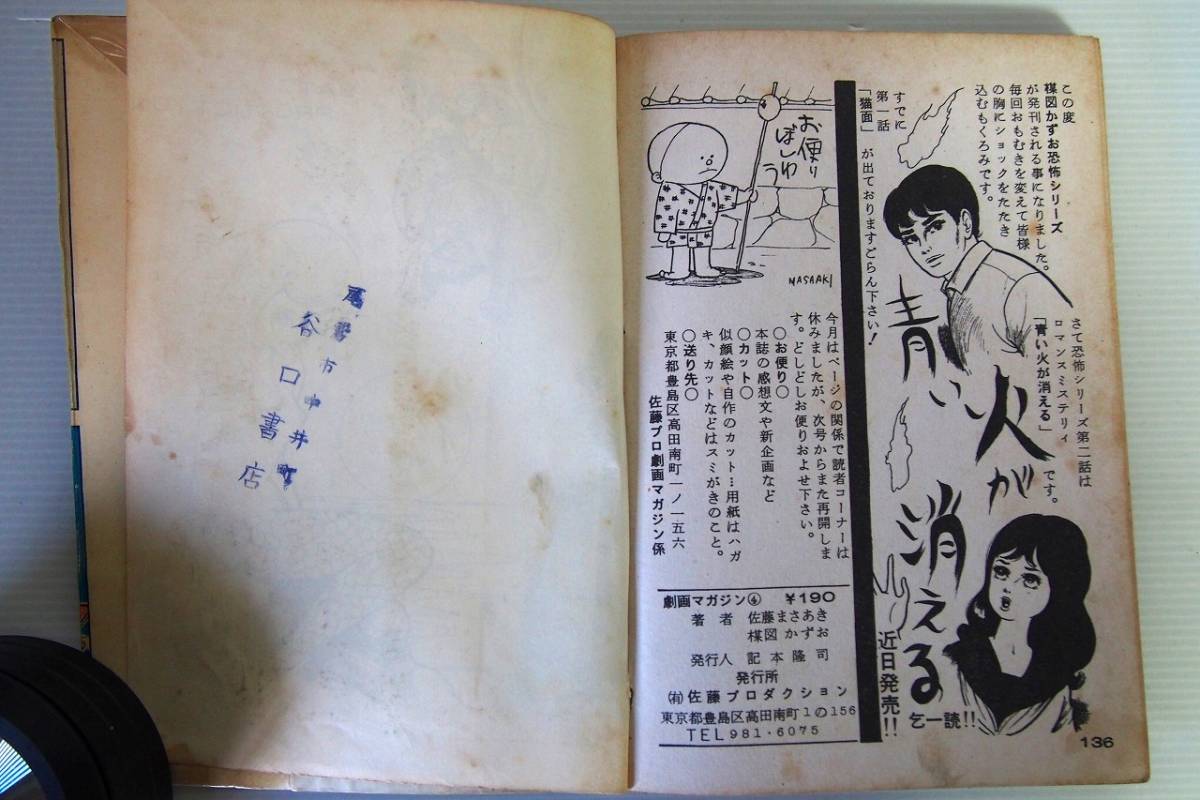 この度
楳図かずお恐怖シリーズ
が発刊される事になりました。
毎回おもむきを変えて皆様
の胸にショックをたたき
込むもくろみです。
すでに
第一話
「猫面」が出ておりますどらん下さい!
さて恐怖シリーズ第二話は
ロマンスミステリィ
「青い火が消える」です。
青い火が消える
近日発売!!
乞一読!!
お便り
ぼしゅう
MASAAKI
今月はページの関係で読者コーナーは
休みましたが、次号からまた再開しま
す。どしどしお便りおよせ下さい。
○お便り○
本誌の感想文や新企画など
○カット○
似顔絵や自作のカット…用紙はハガ
キ、カットなどはスミがきのこと。
○送り先○
東京都豊島区高田南町一ノ一五六
佐藤プロ劇画マガジン係
劇画マガジン④ ¥190
著者 佐藤まさあき
楳図かずお
発行人 記本隆司
発行所
㈲佐藤プロダクション
東京都豊島区高田南町1の156
TEL981・6075
136
尾鷲市中井町
谷口書店